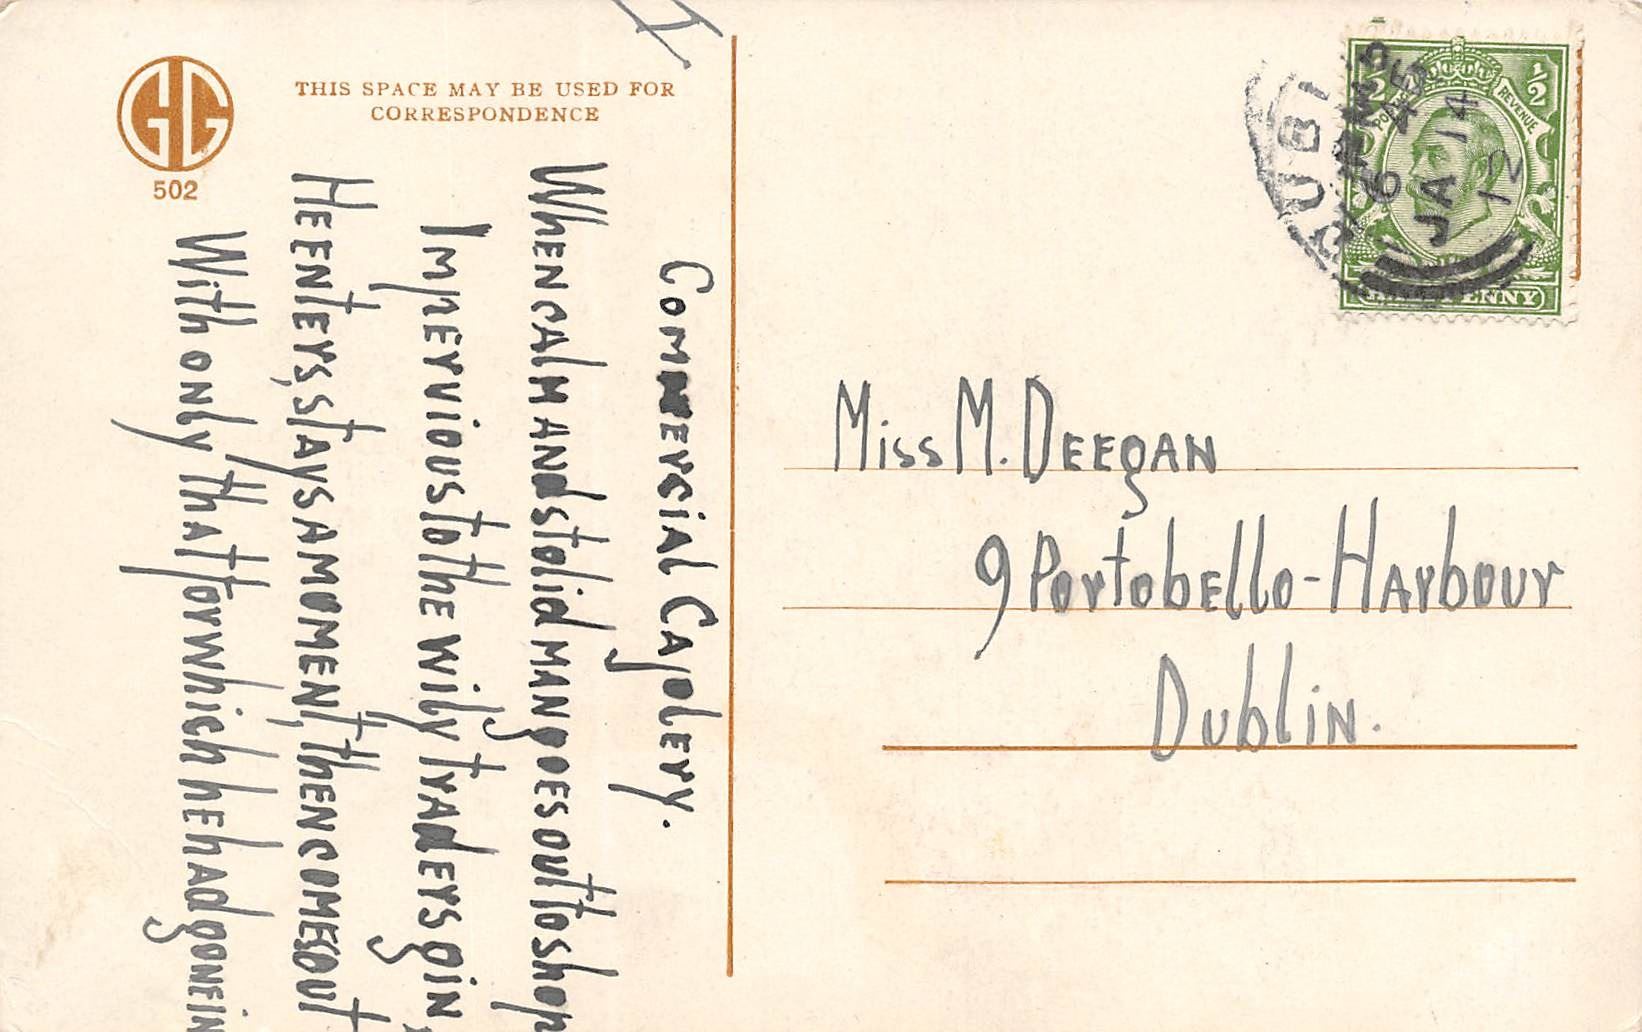 GG
502
THIS SPACE MAY BE USED FOR
CORRESPONDENCE
Commercial Cajolery.
When calm and stolid man goes out to shop
Impervious to the wily traders gin,
He enters, stays a moment, then comes out
With only that for which he had gone in
½ ½
REVENUE
PENNY
6 45 PM
JA 14
12
Miss M. Deegan
9 Portobello-Harbour
Dublin.